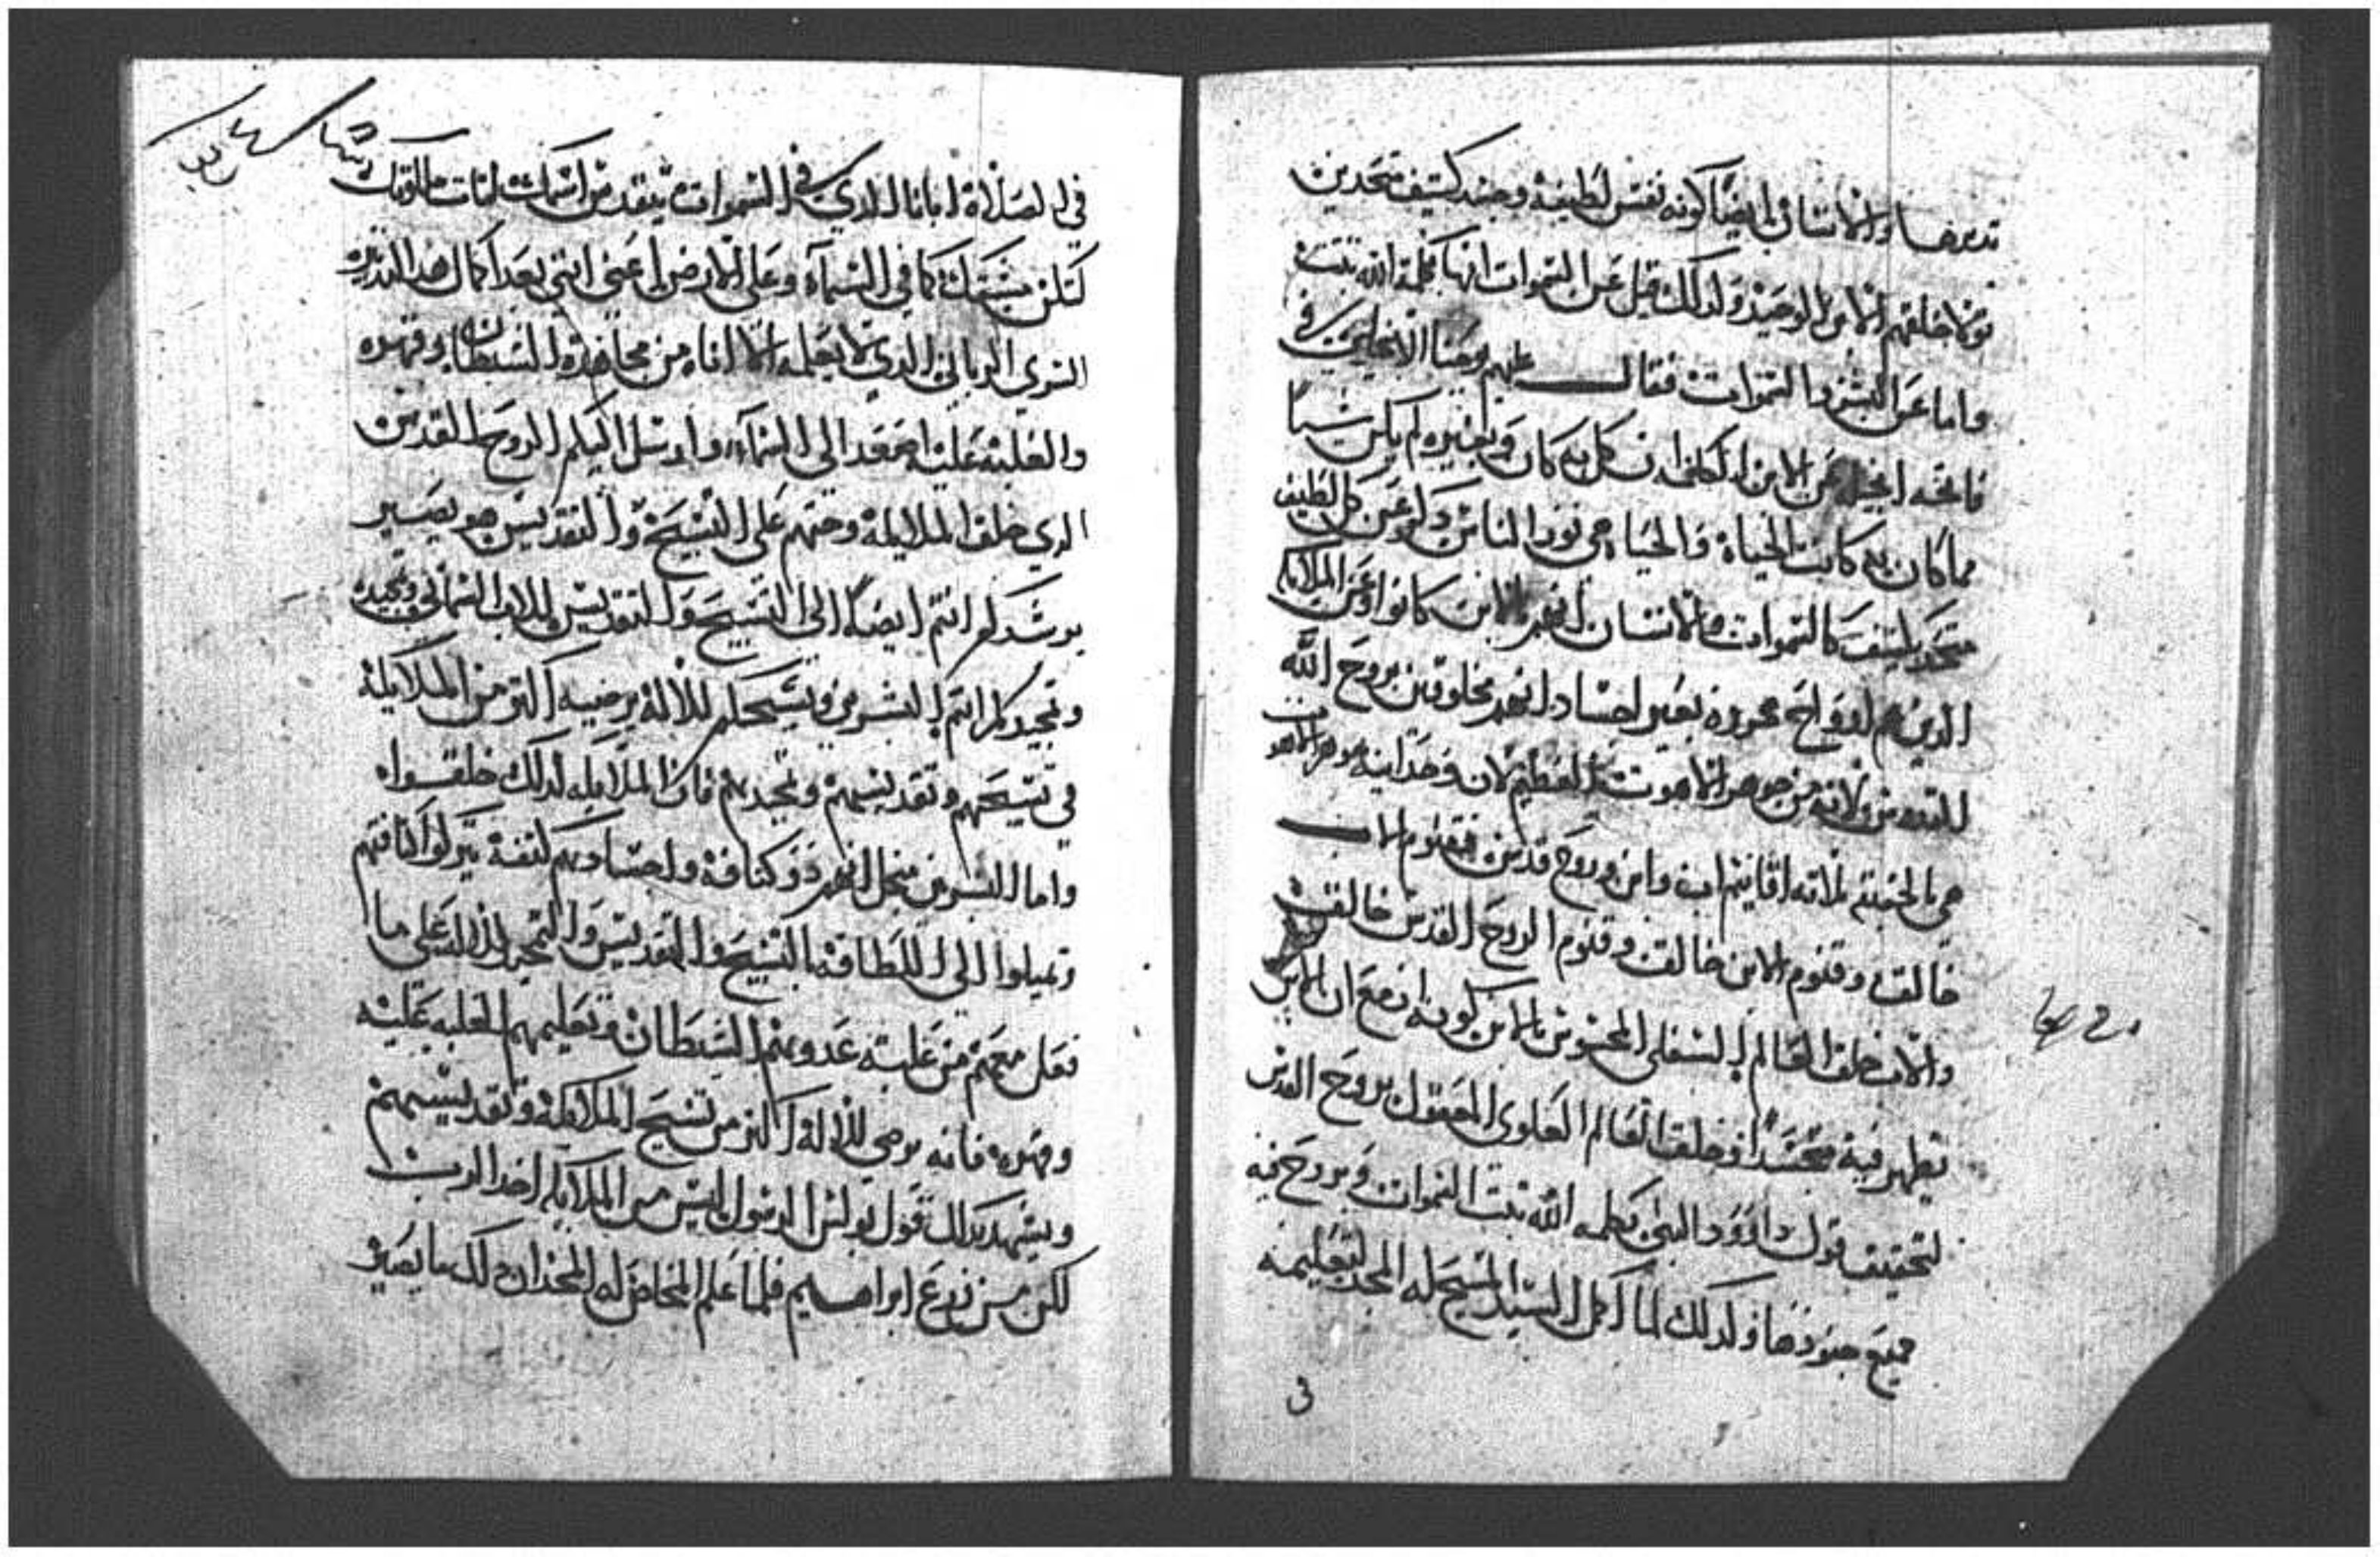 تدبرها والانسان ايضا كونه نفس لطيفة وجسد كتيف متحدين
خلقهم الابن الوحيد ولدلك قيل عن السموات انها بكلمة الله تبتت
واما عن البشر والسموات فقال عنهم يوحنا الانجيلي في
فاتحة انجيله عن الابن الكلمة ان كل به كان وبغيره لم يكن شيا
مما كان به كانت الحياة والحياه هي نور الناس دلوا عن كل لطيف
متحد بكتيف كالسموات والانسان انهم بالابن كانوا وعن الملايكه
الدين هم ارواح مجرده بغير اجساد انهم مخلوقين بروح الله
القدوس ولانه من جوهر اللاهوت العظيم لان وحدانية جوهر اللاهوت
هي بالحقيقة تلاتة اقانيم اب وابن وروح قدس فقنوم الاب
خالق وقنوم الابن خالق وقنوم الروح القدس خالق
والاب خلق العالم السفلي المحسوس بالابن كونه ازمع ان الابن
يظهر فيه متجسدا وخلق العالم العلوي المعقول بروح القدس
لتحقيق قول داوود النبي بكلمه الله تبتت السموات وبروح فيه
جميع جنودها ولدلك لما اكمل السيد المسيح له المجد تعليمه
في الصلاة ابانا الدي في السموات يتقدس اسمك لتات ملكوتك
لتكن مشيتك كما في السماء وعلى الارض اعني انني بعد اكمال هدا التدبير
السري الرباني الدي لا يعلمه الا انا من مجاهدة الشيطان وقهره
والغلبة عليه اصعد الى السماء وارسل اليكم الروح القدس
الدي خلق الملايكة وحتهم على التسبيح والتقديس هو يصير
يرشدكم انتم ايضا الى التسبيح والتقديس للاب السماني وتمجيده
وتمجيدكم انتم البشريين وتسبيحكم للاله يرضيه اكتر من الملايكة
في تسبيحهم وتقديسهم وتمجيدهم فان الملايكه لدلك خلقوا
واما البشريين منجل انهم دو كتافة واجسادهم كتفة يتركوا كتافتهم
ويميلوا الى اللطافة بالتسبيح والتقديس والتمجيد للاله على ما
فعل معهم من غلبته عدوهم الشيطان وتعليمهم الغلبه عليه
وقهره فانه يرضي للاله اكتر من تسبيح الملايكة وتقديسهم
ويشهد بدلك قول بولس الرسول ليس من الملايكه اخد الرب
لكن من زرع ابراهيم فلما علم المخلص له المجد ان دلك ما يصير